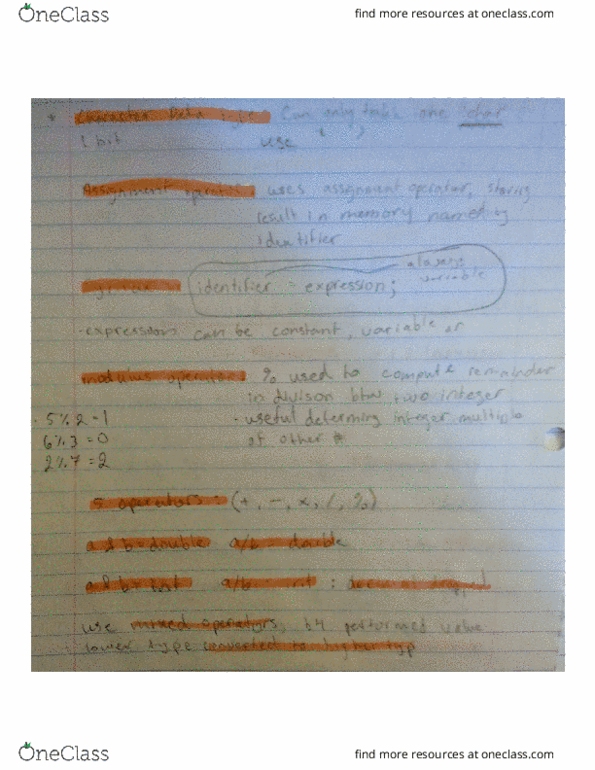 OneClass find more resources at oneclass.com
* Character Data Type Can only take one char
1 bit use ' '
Assignment operator uses assignment operator, storing
result in memory named by
identifier
identifier = expression; always variable
· expressions can be constant, variable or
modulus operator % used to compute remainder
in divison btw two integer
· 5%2 = 1 - useful determing integer multiple
6%3 = 0 of other #
2%7 = 2
5 operators = (+, -, x, /, %)
a & b = double a/b = double
a & b = int a/b = int : decimal dropped
use mixed operators, b4 performed value
lower type converted to higher typ
OneClass find more resources at oneclass.com